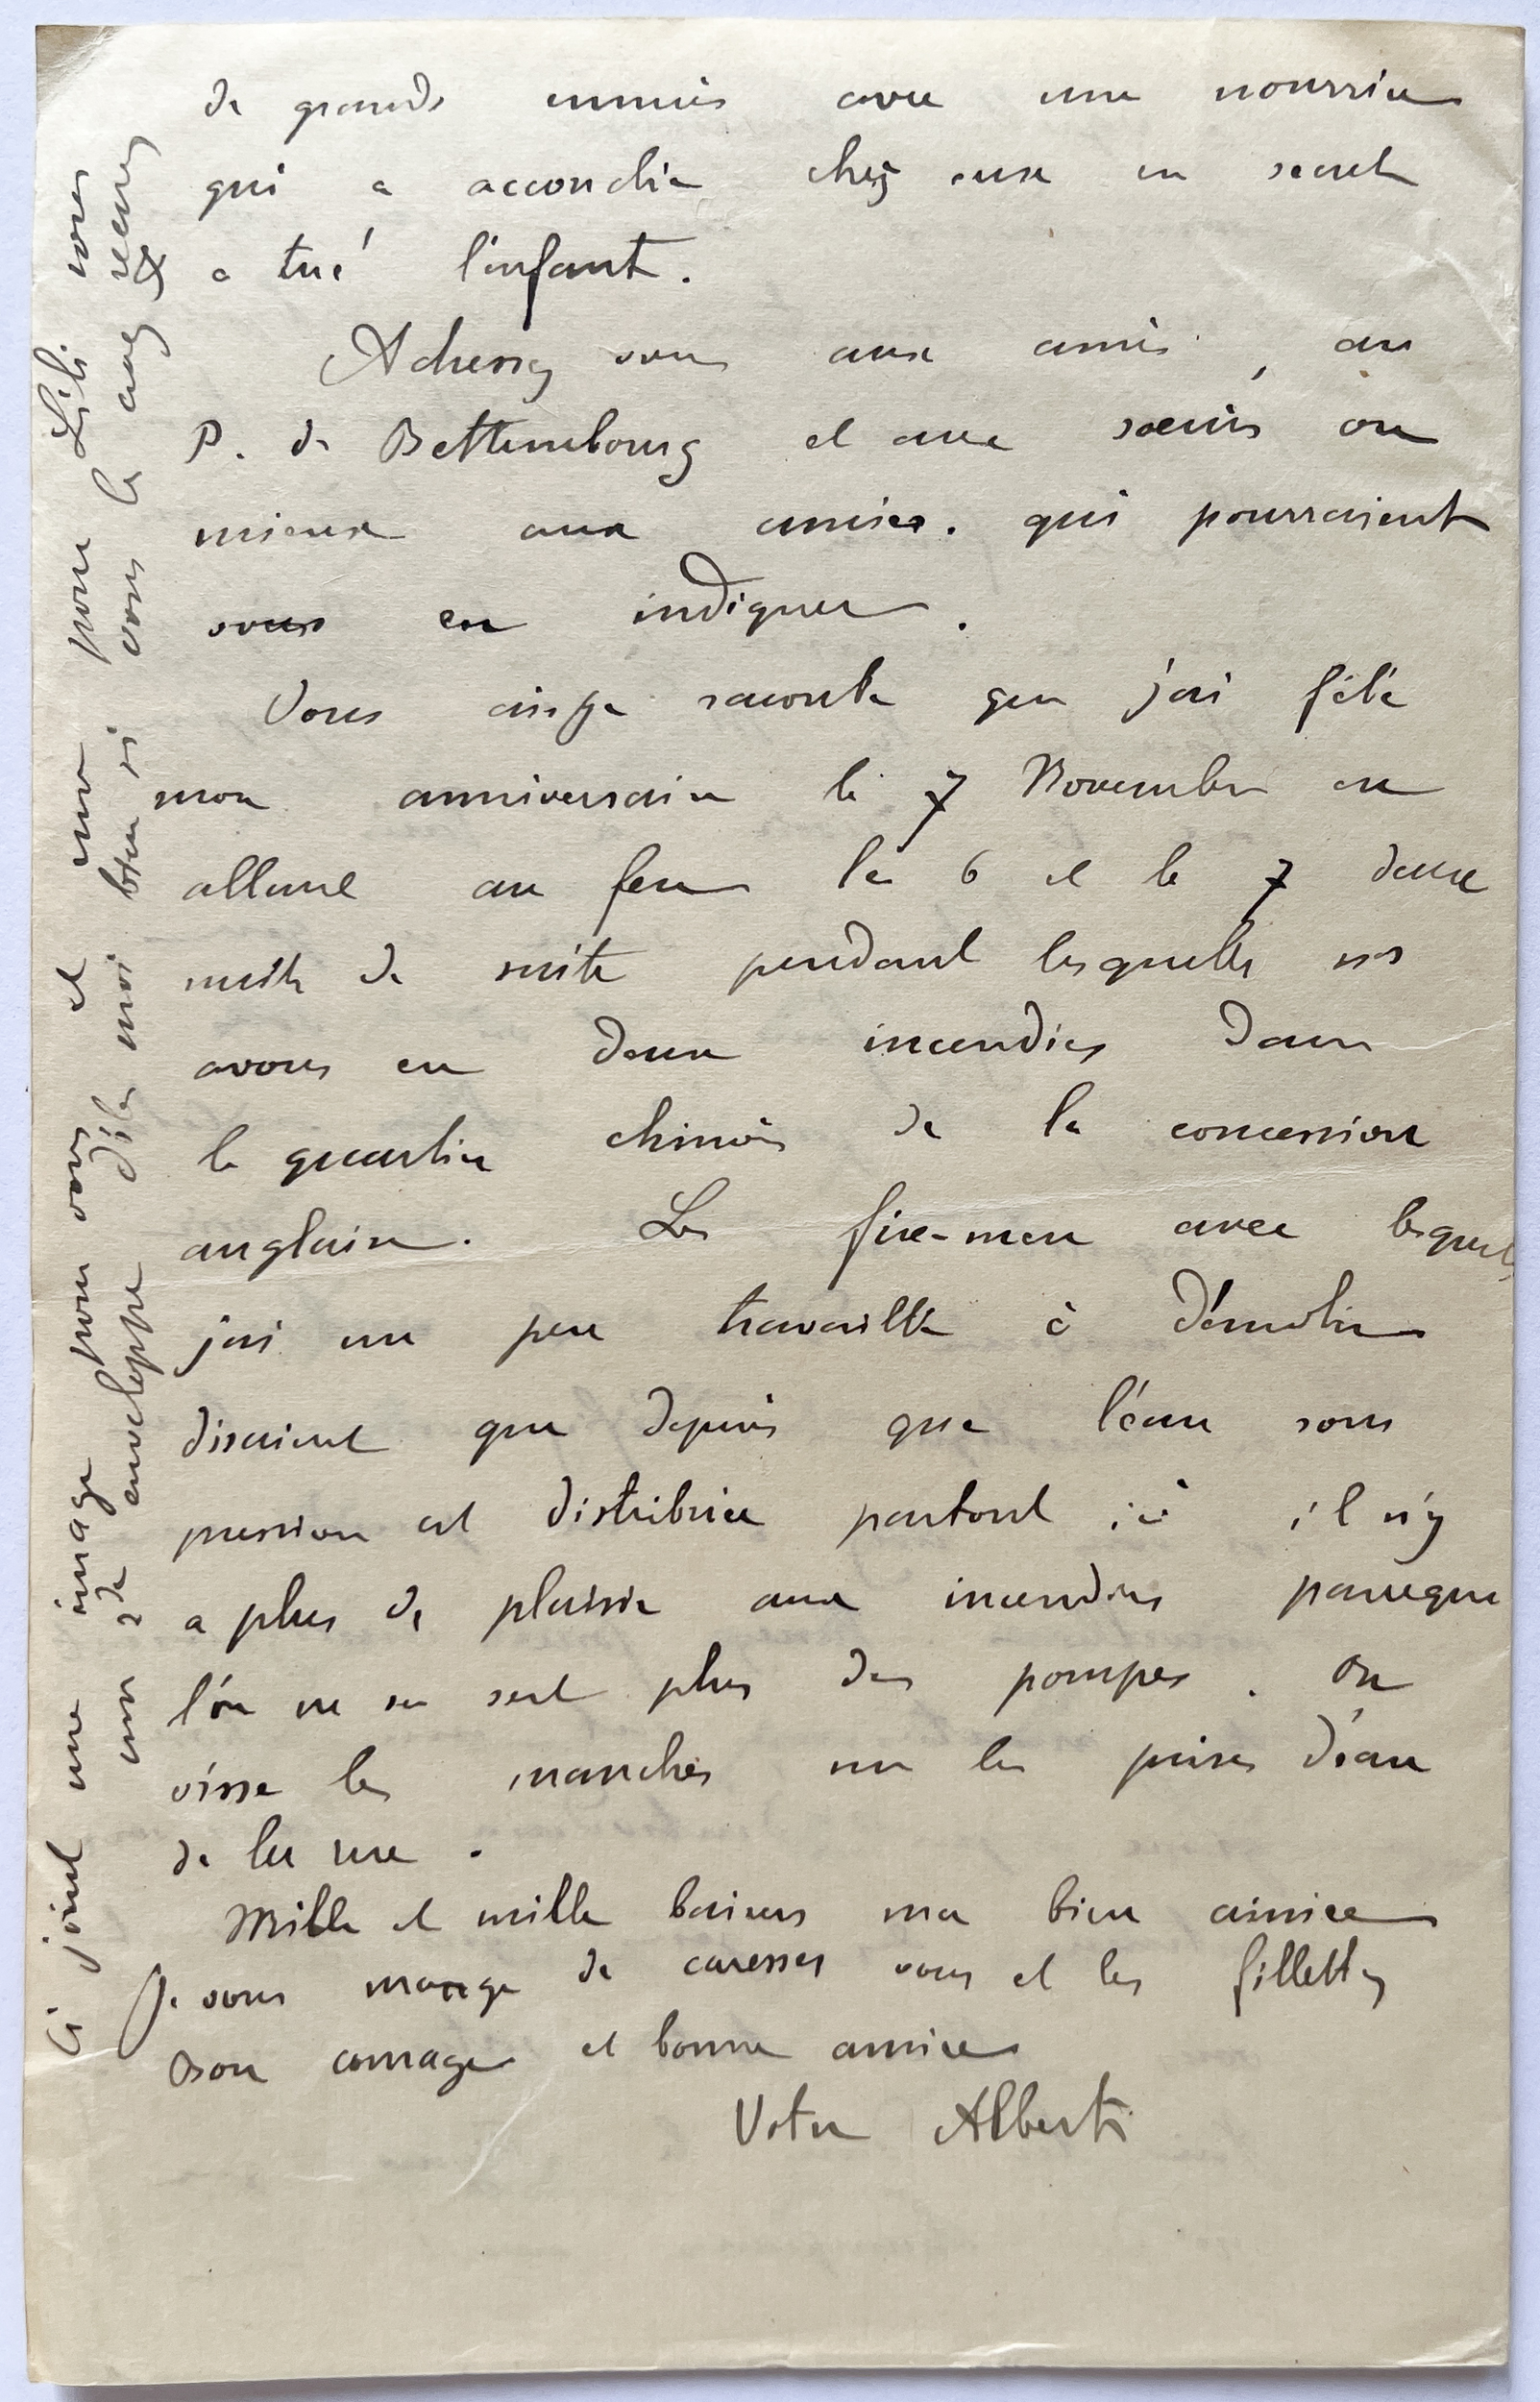 de grands ennuis avec une nourrice
qui a accouché chez eux en secret
a tué l'enfant.
Adressez vous aux amis, au
P. de Bettembourg et aux sœurs ou
mieux aux amies. qui pourraient
vous en indiquer.
Vous ai-je raconté que j'ai fêté
mon anniversaire le 7 Novembre en
allant au feu le 6 et le 7 deux
nuits de suite pendant lesquelles ns
avons eu deux incendies dans
le quartier chinois de la concession
anglaise. Les fire-men avec lesquels
j'ai un peu travaillé à démolir
disaient que depuis que l'eau sous
pression est distribuée partout ici il n'y
a plus de plaisir aux incendies parceque
l'on ne se sert plus des pompes. On
visse les manches sur les prises d'eau
de la rue.
Mille et mille baisers ma bien aimée
Je vous mange de caresses vous et les fillettes
Bon courage et bonne année
Votre Albert
Ci joint une image pour vous et une pour Lili sous
une 2de enveloppe dites moi bien si vous les avez reçues